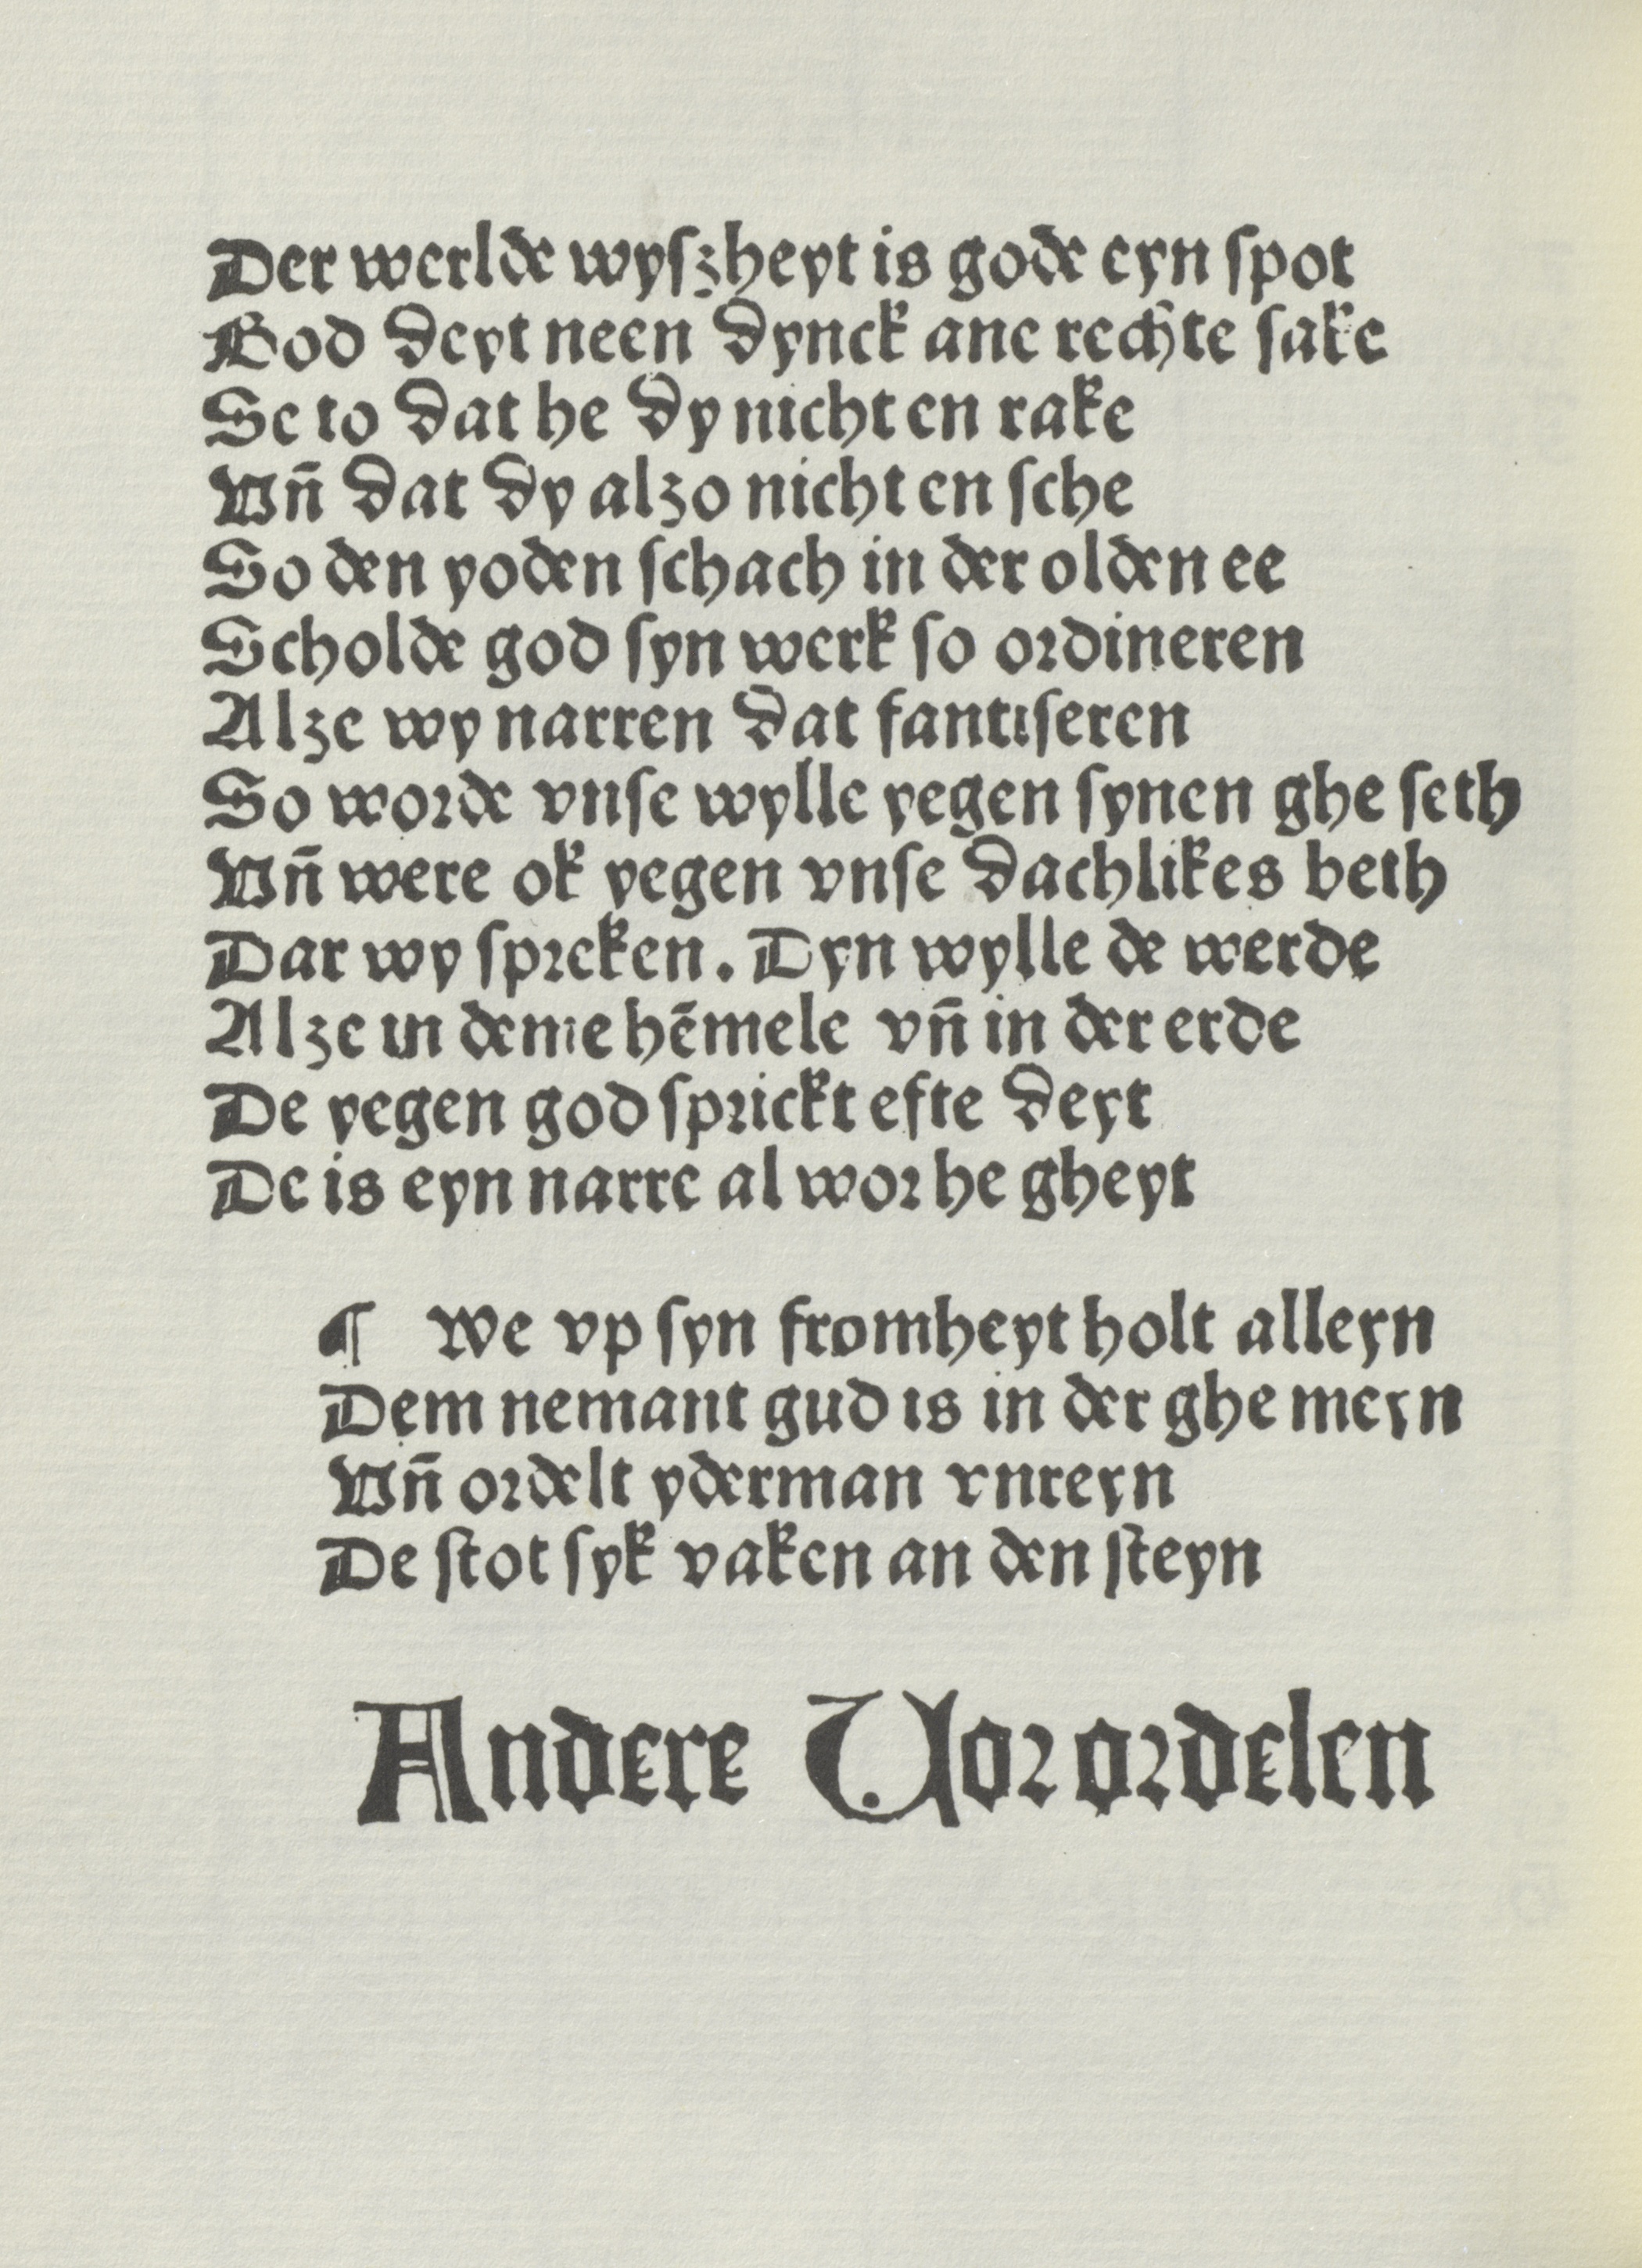 Der werlde wyſzheyt is gode eyn ſpot
God deyt neen dynck ane rechte ſake
Se to dat he dy nicht en rake
Vn̄ dat dy alzo nicht en ſche
So den yoden ſchach in der olden ee
Scholde god ſyn werk ſo ordineren
Alze wy narren dat fantiſeren
So worde vnſe wylle yegen ſynen ghe ſeth
Vn̄ were ok yegen vnſe dachlikes beth
Dar wy ſpreken. Dyn wylle de werde
Alze in deme hēmele vn̄ in der erde
De yegen god ſprickt efte deyt
De is eyn narre al wor he gheyt
¶ We vp ſyn fromheyt holt alleyn
Dem nemant gud is in der ghe meyn
Vn̄ ordelt yderman vnreyn
De ſtot ſyk vaken an den ſteyn
Andere Vor ordelen